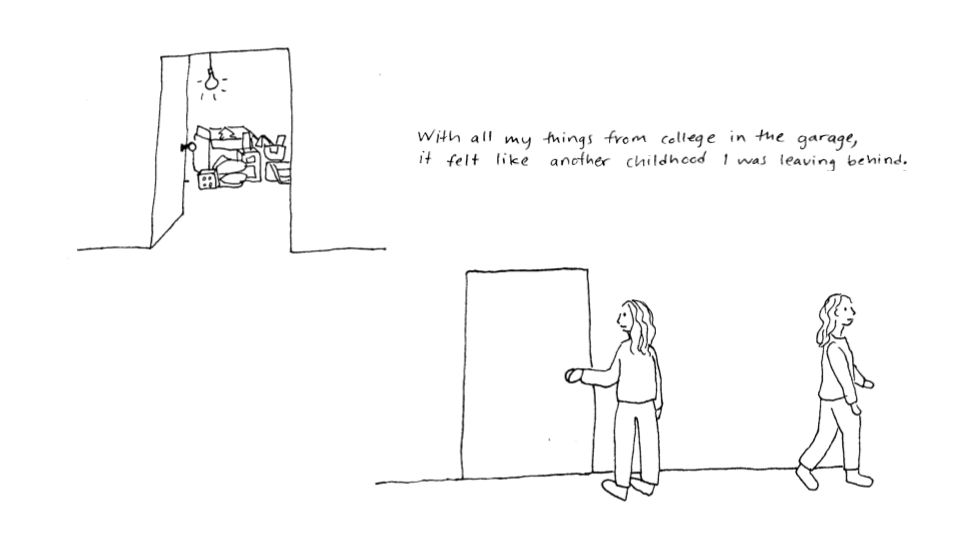 With all my things from college in the garage,
it felt like another childhood I was leaving behind.